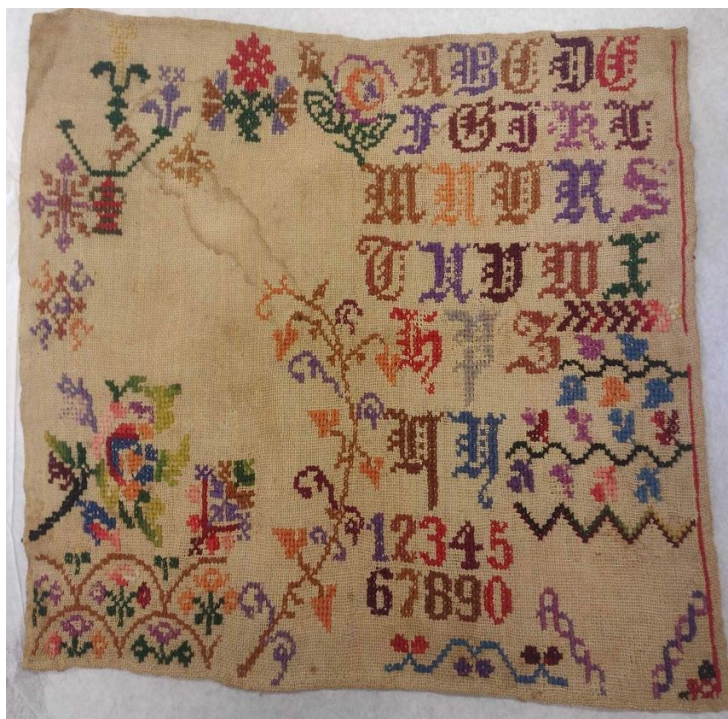 A B C D E
F G I K L
M N R S
T U V W X
Z
1 2 3 4 5
6 7 8 9 0